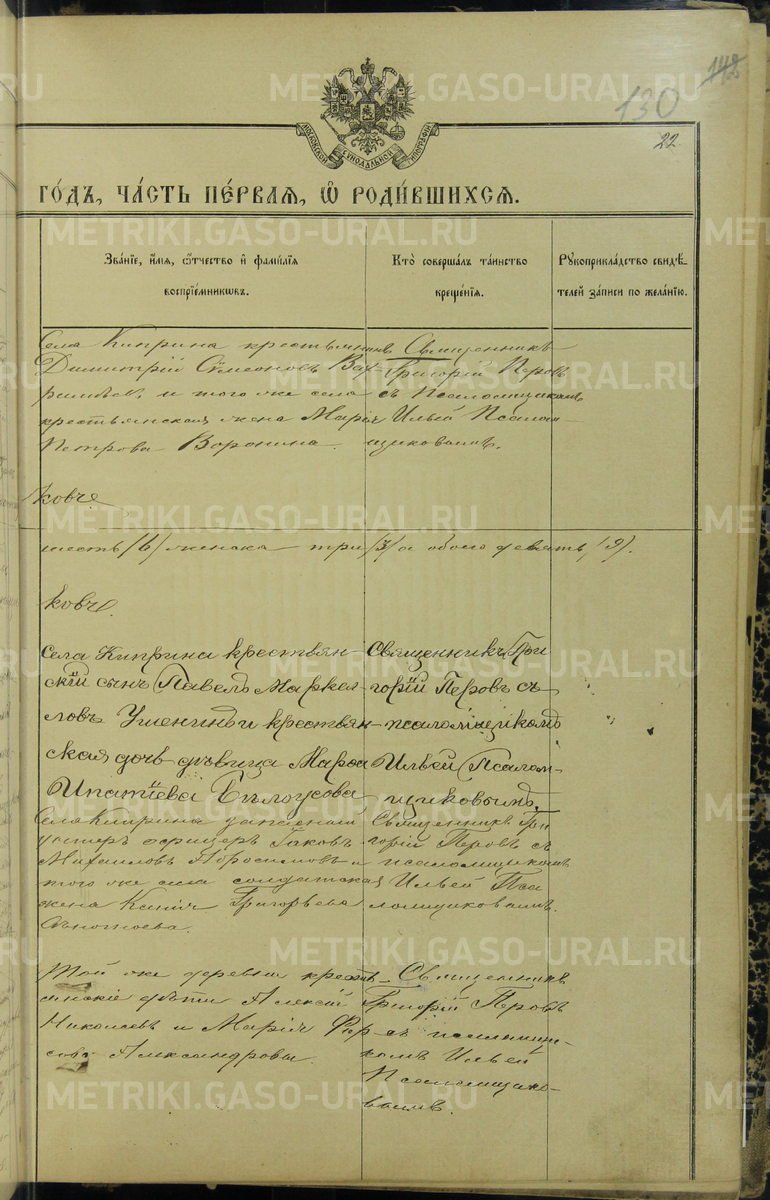 METRIKI.GASO-URAL.RU
142
130
22
МОСКОВСКОЙ СѴНОДАЛЬНОЙ ТИПОГРАФІИ
ГО́ДЪ, ЧА́СТЬ ПЕ́РВАЯ, Ѽ РОДИ́ВШИХСЯ.
Зва́ніе, и́мя, ѻ҆́тчество и҆ фами́лія
воспріе́мниковъ.
Кто̀ соверша́лъ та́инство
креще́нія.
Рꙋкоприкла́дство свидѣ́-
телей за́писи по жела́нію.
Села Киприна крестьянинъ
Димитрій Сѵмеоновъ
и того же села
крестьянская жена Марія
Петрова Воронина.
Священникъ
Григорій Перовъ
съ Псаломщикомъ
Ильей Псалом-
щиковымъ.
ковъ
шесть /6/ женска три /3/ а обоего девять /9/.
ковъ.
Села Киприна крестьян-
скій сынъ Павелъ Маркел-
ловъ и крестьян-
ская дочь дѣвица Марѳа
Ипатіева Бѣлоусова
Священникъ Гри
горій Перовъ съ
псаломщикомъ
Ильей Псалом-
щиковымъ.
Села Киприна запасный
унтеръ офицеръ Іаковъ
Михаиловъ и
того же села солдатская
жена Ксенія Григорьева
Священникъ Гри
горій Перовъ съ
псаломщикомъ
Ильей Пса
ломщиковымъ.
Той же деревни кресть-
янскіе дѣти Алексій
Николаевъ и Марія Фир-
сова Александровы.
Священникъ
Григорій Перовъ
съ псаломщи-
комъ Ильей
Псаломщико-
вымъ.